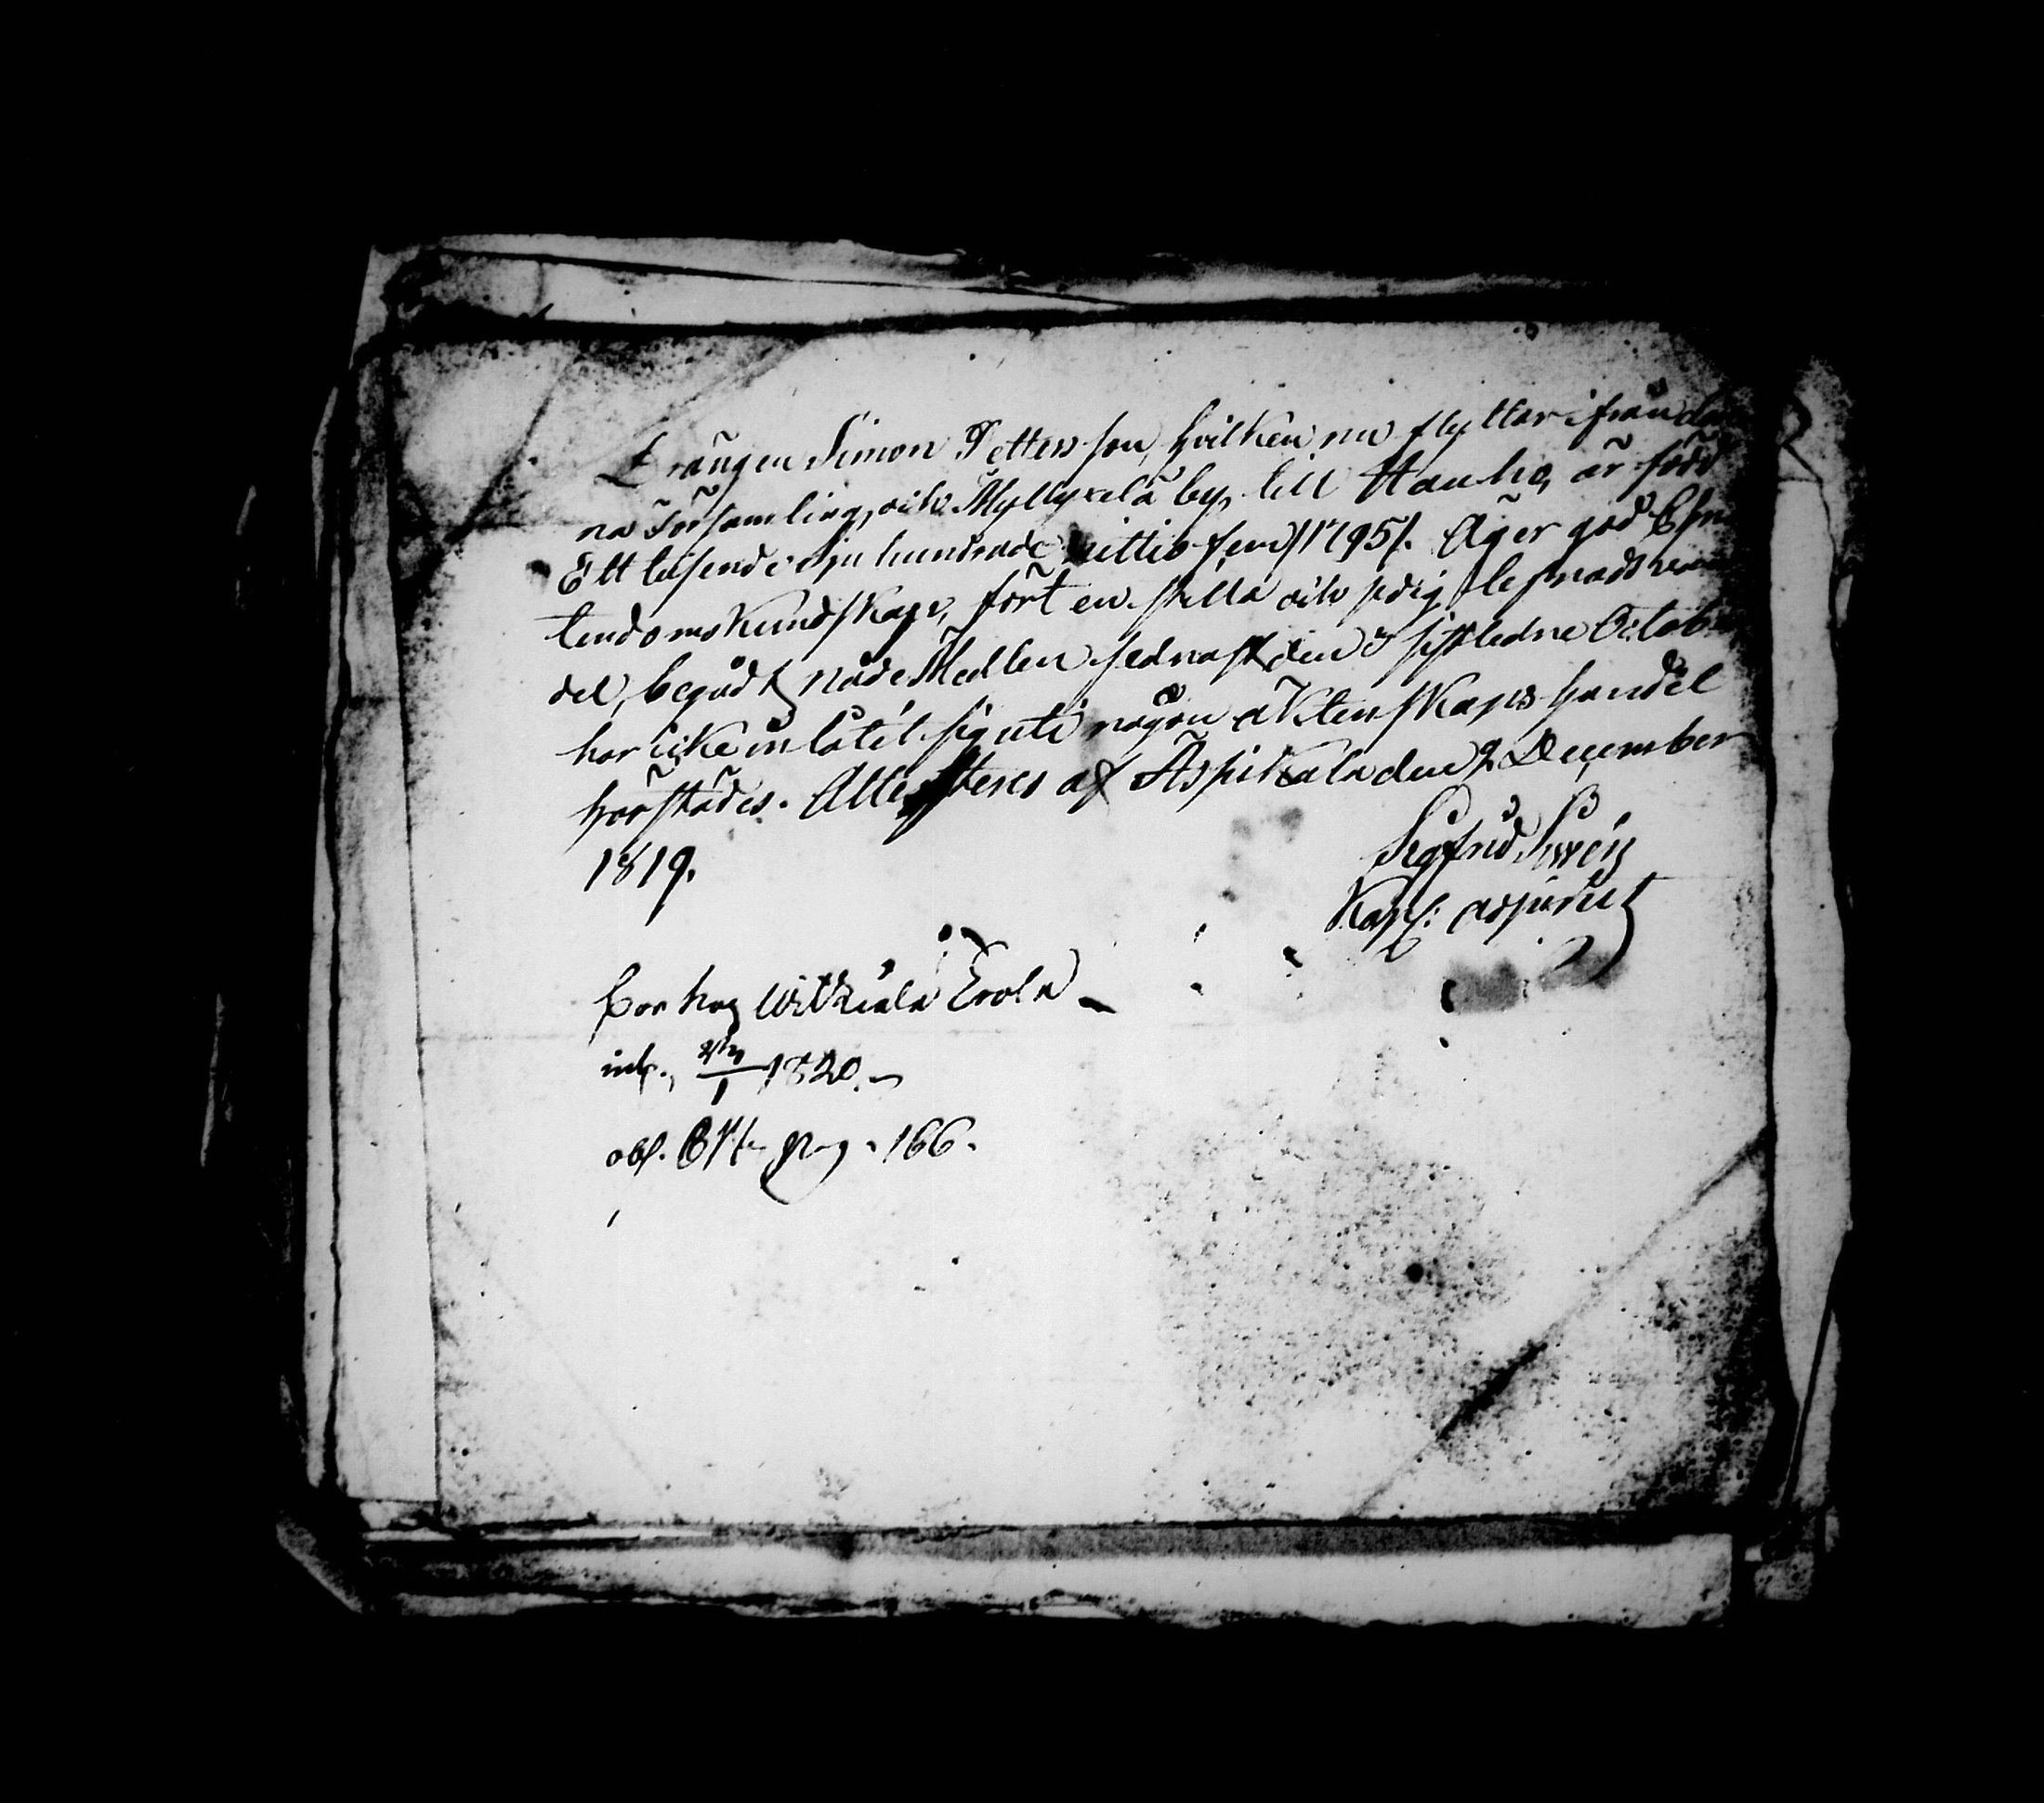 Drängen Simon Petters son, hvilken nu flyttar ifrån den
na Församling, och Myllyselä by, till Hauho, är född
Ett tusende sju hundrade nittio fem /1795/. Äger god Chris
tendoms Kundskap, fört en stilla och sedig lefnadsvan
del, begådt nåde Medlen sednast den 3 sistledne Octob
har icke inlåtit sig uti någon äktenskaps handel
härstädes. Attesteres af Äspikälä den 9 December
1819.
Sigfrid
Kapl: adjunct
bor hos Witziälä Erola
inl. 1820.
abs. pag. 166.